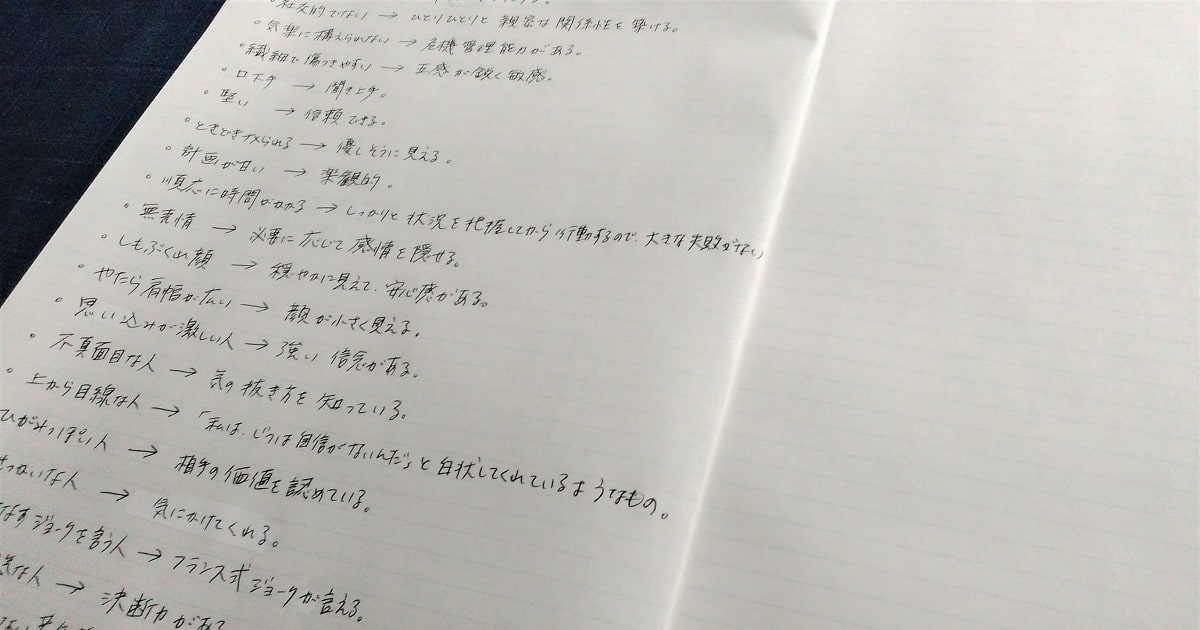 社交的でない → ひとりひとりと親密な関係性を築ける。
・気楽に構えられない → 危機管理能力がある。
・繊細で傷つきやすい → 五感が鋭く敏感。
・口下手 → 聞き上手。
・堅い → 信頼できる。
・ときどきナメられる → 優しそうに見える。
・計画が甘い → 楽観的。
・順応に時間がかかる → しっかりと状況を把握してから行動するので、大きな失敗がない
・無表情 → 必要に応じて感情を隠せる。
・しもぶくれ顔 → 穏やかに見えて、安心感がある。
・やたら肩幅が広い → 顔が小さく見える。
・思い込みが激しい人 → 強い信念がある。
・不真面目な人 → 気の抜き方を知っている。
・上から目線な人 → 「私は、じつは自信がないんだ」と白状してくれているようなもの。
ひがみっぽい人 → 相手の価値を認めている。
せっかいな人 → 気にかけてくれる。
なすジョークを言う人 → フランス式ジョークが言える。
気な人 → 決断力がある